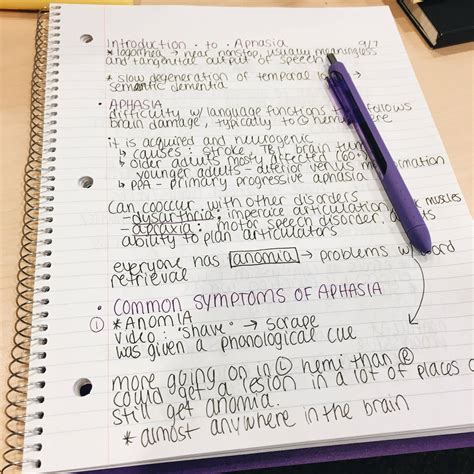 Introduction to Aphasia 9/7
* logorrhea → near nonstop, usually meaningless
and tangential output of speech
* slow degeneration of temporal
semantic dementia
• APHASIA
difficulty w/ language functions follows
brain damage, typically to Ⓛ
it is acquired and neurogenic
↳ causes: stroke, TBI, brain
↳ older adults mostly affected (60+)
younger adults - arterior venus
↳ PPA - primary progressive aphasia
Can cooccur with other disorders
- dysarthria: articulation muscles
- apraxia: motor speech disorder.
ability to plan articulators
everyone has anomia → problems w/ word
retrieval
• COMMON SYMPTOMS OF APHASIA
① * ANOMIA
video: "shave" → scrape
was given a phonological cue
more going on in Ⓛ hemi than Ⓡ
could get a lesion in a lot of places
still get anomia.
* almost anywhere in the brain